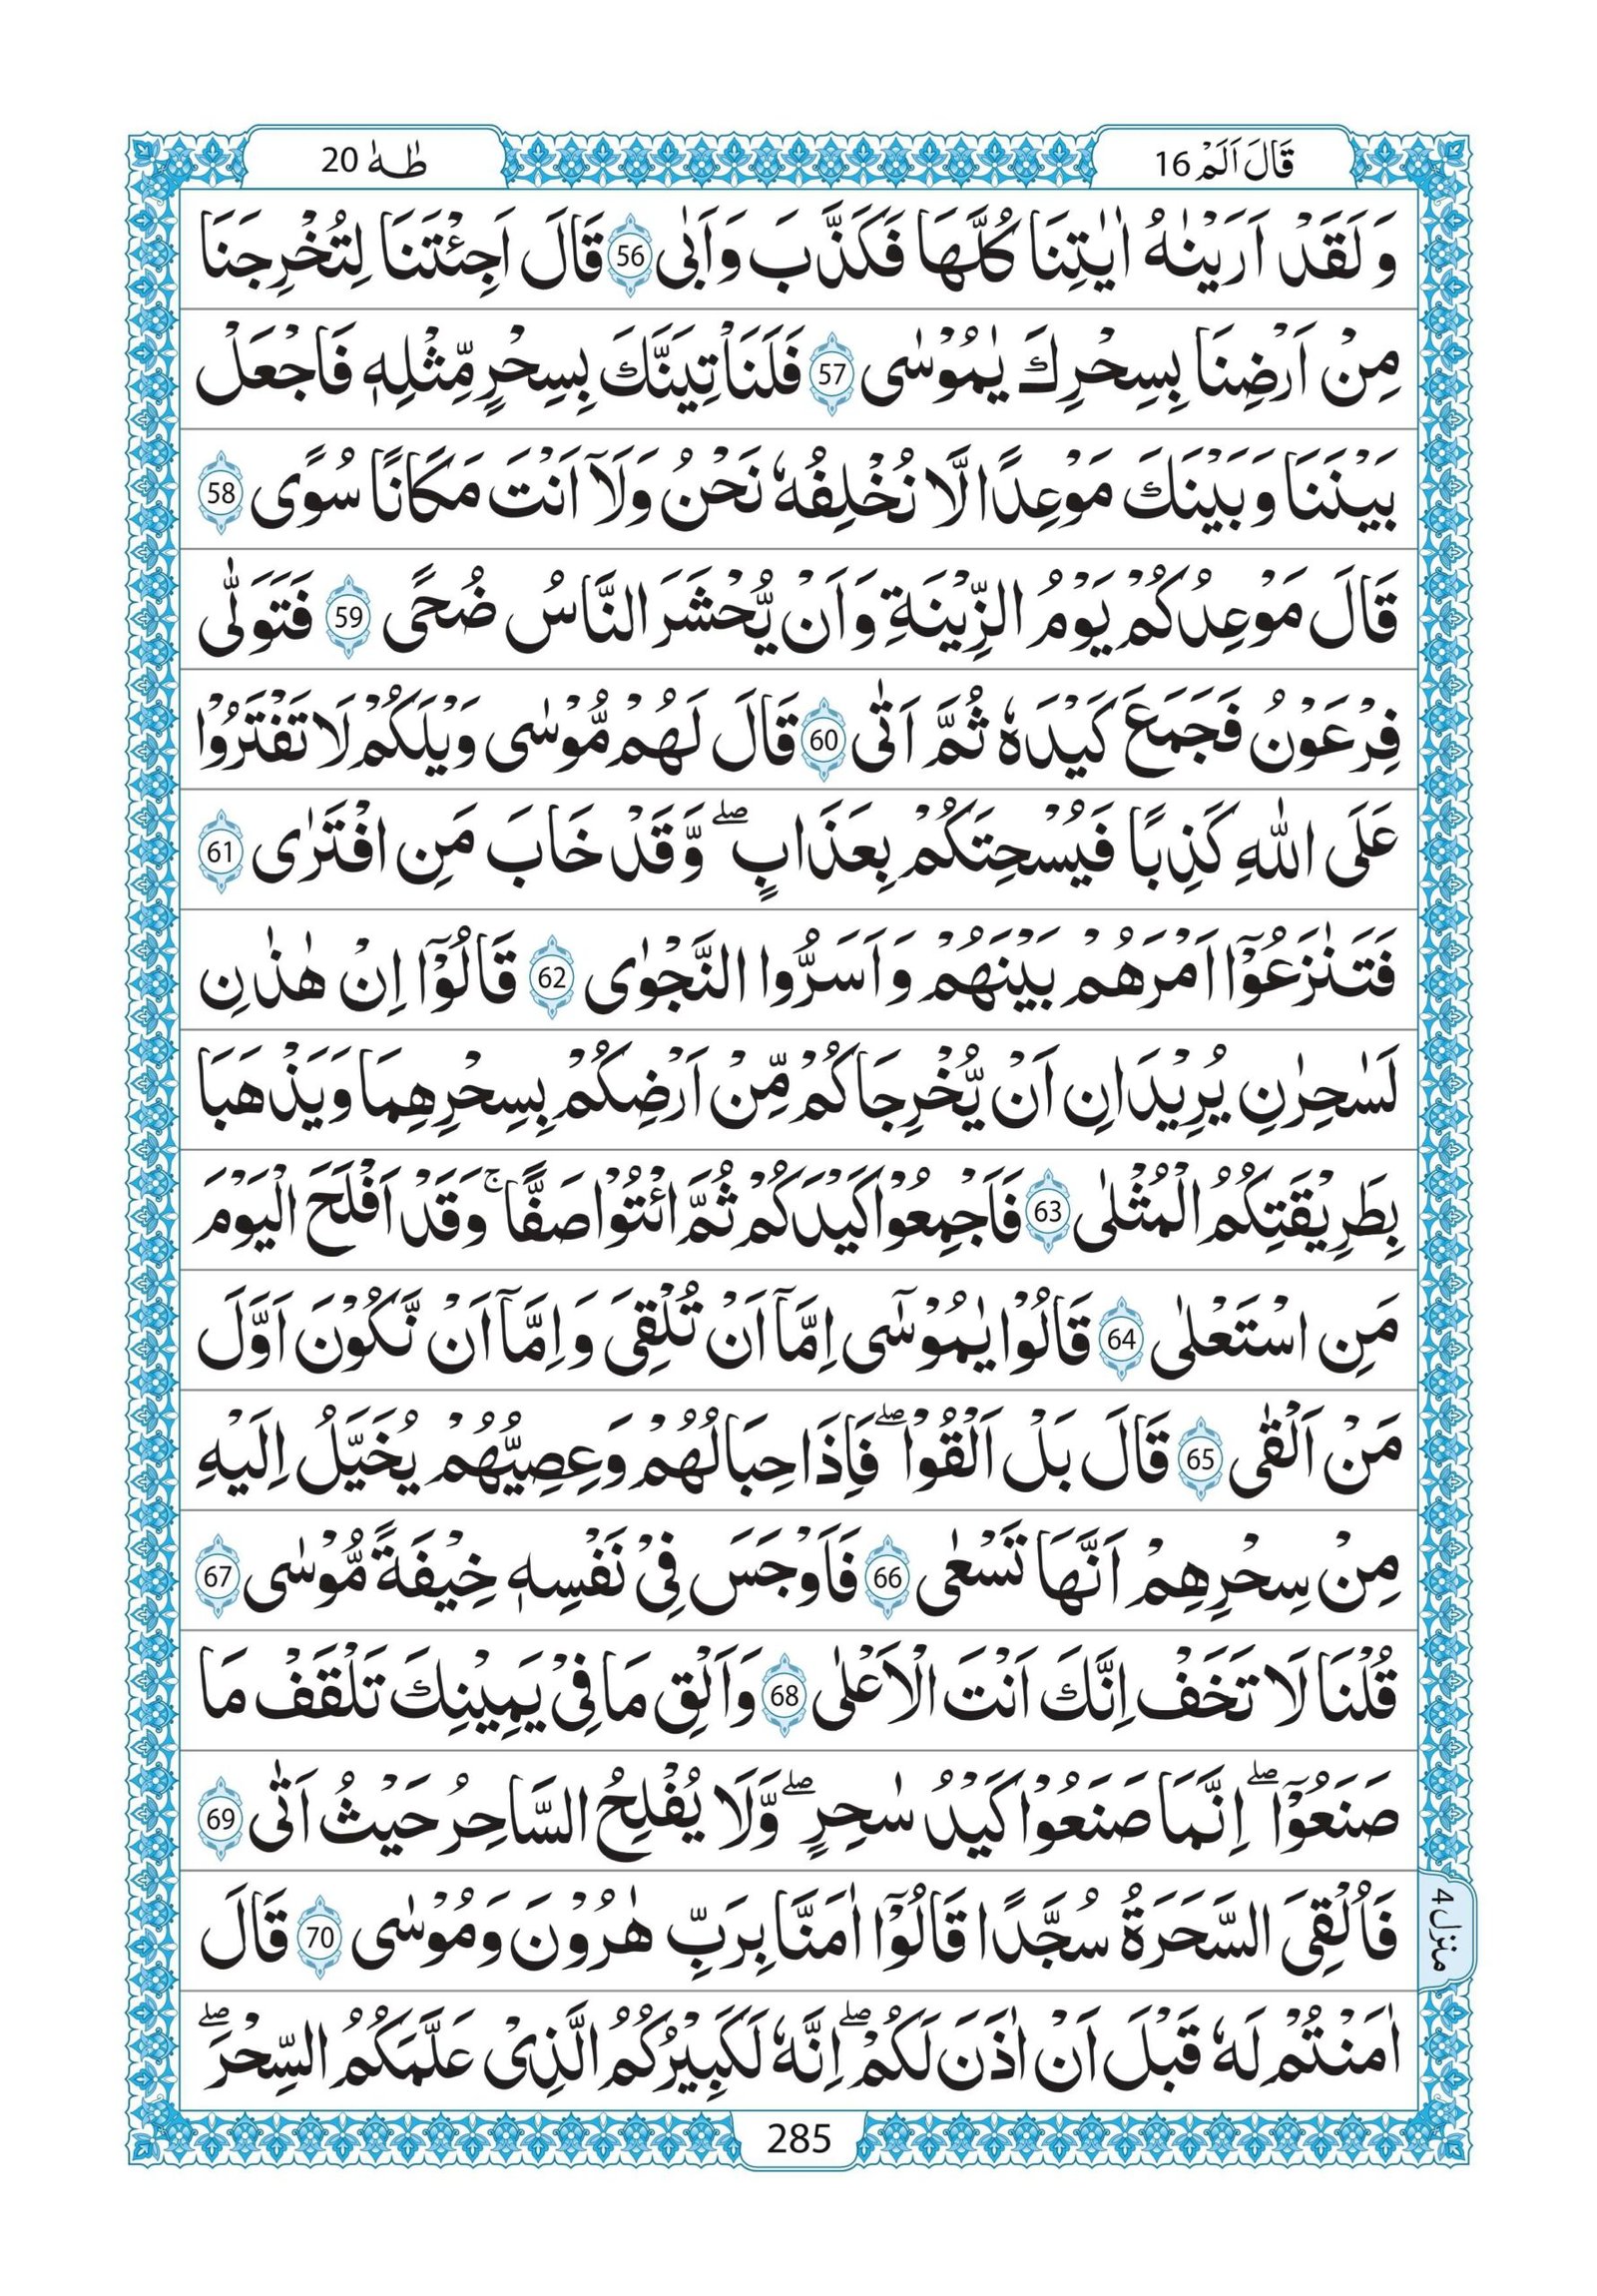 قَالَ اَلَمْ 16
طٰهٰ 20
وَلَقَدْ اَرَيْنٰهُ اٰيٰتِنَا كُلَّهَا فَكَذَّبَ وَاَبٰى 56 قَالَ اَجِئْتَنَا لِتُخْرِجَنَا
مِنْ اَرْضِنَا بِسِحْرِكَ يٰمُوْسٰى 57 فَلَنَاْتِيَنَّكَ بِسِحْرٍ مِّثْلِهٖ فَاجْعَلْ
بَيْنَنَا وَبَيْنَكَ مَوْعِدًا لَّا نُخْلِفُهٗ نَحْنُ وَلَآ اَنْتَ مَكَانًا سُوًى 58
قَالَ مَوْعِدُكُمْ يَوْمُ الزِّيْنَةِ وَاَنْ يُّحْشَرَ النَّاسُ ضُحًى 59 فَتَوَلّٰى
فِرْعَوْنُ فَجَمَعَ كَيْدَهٗ ثُمَّ اَتٰى 60 قَالَ لَهُمْ مُّوْسٰى وَيْلَكُمْ لَا تَفْتَرُوْا
عَلَى اللّٰهِ كَذِبًا فَيُسْحِتَكُمْ بِعَذَابٍ ۖ وَّقَدْ خَابَ مَنِ افْتَرٰى 61
فَتَنٰزَعُوْٓا اَمْرَهُمْ بَيْنَهُمْ وَاَسَرُّوا النَّجْوٰى 62 قَالُوْٓا اِنْ هٰذٰنِ
لَسٰحِرٰنِ يُرِيْدَانِ اَنْ يُّخْرِجَاكُمْ مِّنْ اَرْضِكُمْ بِسِحْرِهِمَا وَيَذْهَبَا
بِطَرِيْقَتِكُمُ الْمُثْلٰى 63 فَاَجْمِعُوْا كَيْدَكُمْ ثُمَّ ائْتُوْا صَفًّا ۚ وَقَدْ اَفْلَحَ الْيَوْمَ
مَنِ اسْتَعْلٰى 64 قَالُوْا يٰمُوْسٰٓى اِمَّآ اَنْ تُلْقِىَ وَاِمَّآ اَنْ نَّكُوْنَ اَوَّلَ
مَنْ اَلْقٰى 65 قَالَ بَلْ اَلْقُوْا ۖ فَاِذَا حِبَالُهُمْ وَعِصِيُّهُمْ يُخَيَّلُ اِلَيْهِ
مِنْ سِحْرِهِمْ اَنَّهَا تَسْعٰى 66 فَاَوْجَسَ فِىْ نَفْسِهٖ خِيْفَةً مُّوْسٰى 67
قُلْنَا لَا تَخَفْ اِنَّكَ اَنْتَ الْاَعْلٰى 68 وَاَلْقِ مَا فِىْ يَمِيْنِكَ تَلْقَفْ مَا
صَنَعُوْٓا ۖ اِنَّمَا صَنَعُوْا كَيْدُ سٰحِرٍ ۖ وَّلَا يُفْلِحُ السَّاحِرُ حَيْثُ اَتٰى 69
فَاُلْقِىَ السَّحَرَةُ سُجَّدًا قَالُوْٓا اٰمَنَّا بِرَبِّ هٰرُوْنَ وَمُوْسٰى 70 قَالَ
اٰمَنْتُمْ لَهٗ قَبْلَ اَنْ اٰذَنَ لَكُمْ ۖ اِنَّهٗ لَكَبِيْرُكُمُ الَّذِىْ عَلَّمَكُمُ السِّحْرَ ۖ
منزل 4
285